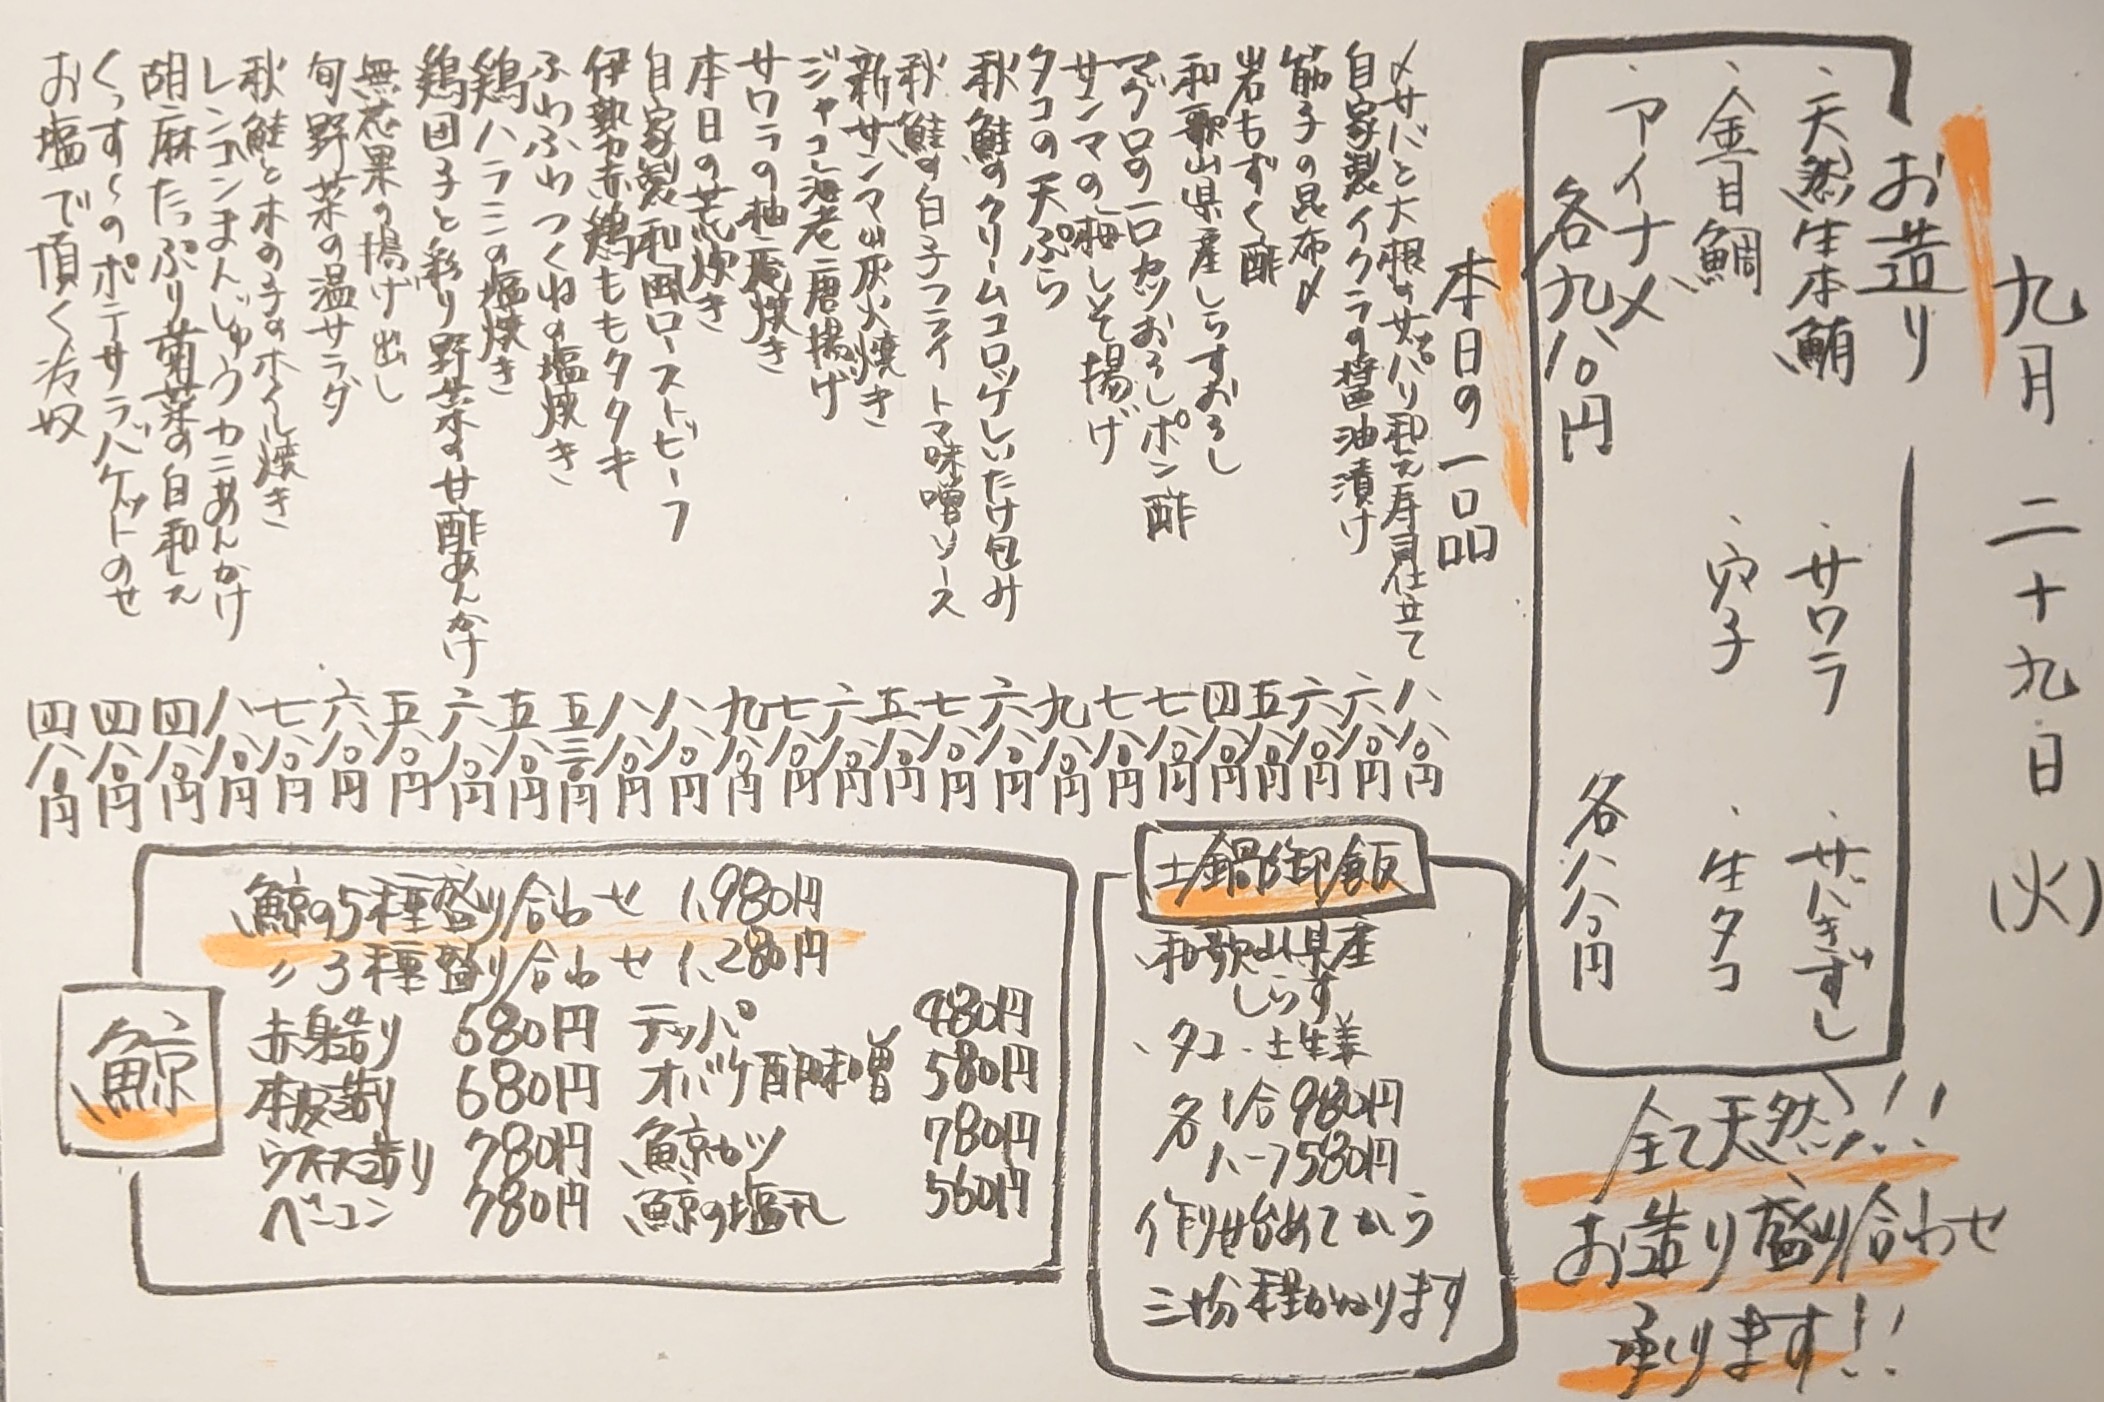 九月二十九日(火)
お造り
・天然生本鮪
・サワラ
・サバきずし
・金目鯛
・穴子
・生タコ
・アイナメ
各九八〇円
各八八〇円
全て天然!!
お造り盛り合わせ
承ります!!
本日の一品
〆サバと大根のサッパリ和え寿司仕立て 八八〇円
自家製イクラの醤油漬け 六八〇円
筋子の昆布〆 六八〇円
岩もずく酢 五八〇円
和歌山県産しらすおろし 四八〇円
マグロの一口カツおろしポン酢 七八〇円
サンマの梅しそ揚げ 七八〇円
タコの天ぷら 九八〇円
秋鮭のクリームコロッケしいたけ包み 六八〇円
秋鮭の白子フライトマト味噌ソース 七八〇円
新サンマ炭火焼き 五八〇円
ジャコ海老唐揚げ 六八〇円
サワラの柚庵焼き 七八〇円
本日の荒炊き 九八〇円
自家製和風ローストビーフ 八八〇円
伊勢赤鶏ももタタキ 八八〇円
ふわふわつくねの塩焼き 五三〇円
鶏ハラミの塩焼き 五八〇円
鶏団子と彩り野菜の甘酢あんかけ 六八〇円
無花果の揚げ出し 五八〇円
旬野菜の温サラダ 六八〇円
秋鮭と木の子のホイル焼き 七八〇円
レンコンまんじゅうカニあんかけ 八八〇円
胡麻たっぷり菊菜の白和え 四八〇円
くっす〜のポテサラバゲットのせ 四八〇円
お塩で頂く冷奴 四八〇円
土鍋御飯
・和歌山県産
しらす
・タコ・土生姜
各1合980円
ハーフ580円
作り始めてから
三十分程かかります
鯨
鯨の5種盛り合わせ 1,980円
〃3種盛り合わせ 1,280円
赤身造り 680円 テッパ 480円
本皮造り 680円 オバケ酢味噌 580円
ウネス造り 780円 鯨カツ 780円
ベーコン 780円 鯨の塩タレ 560円